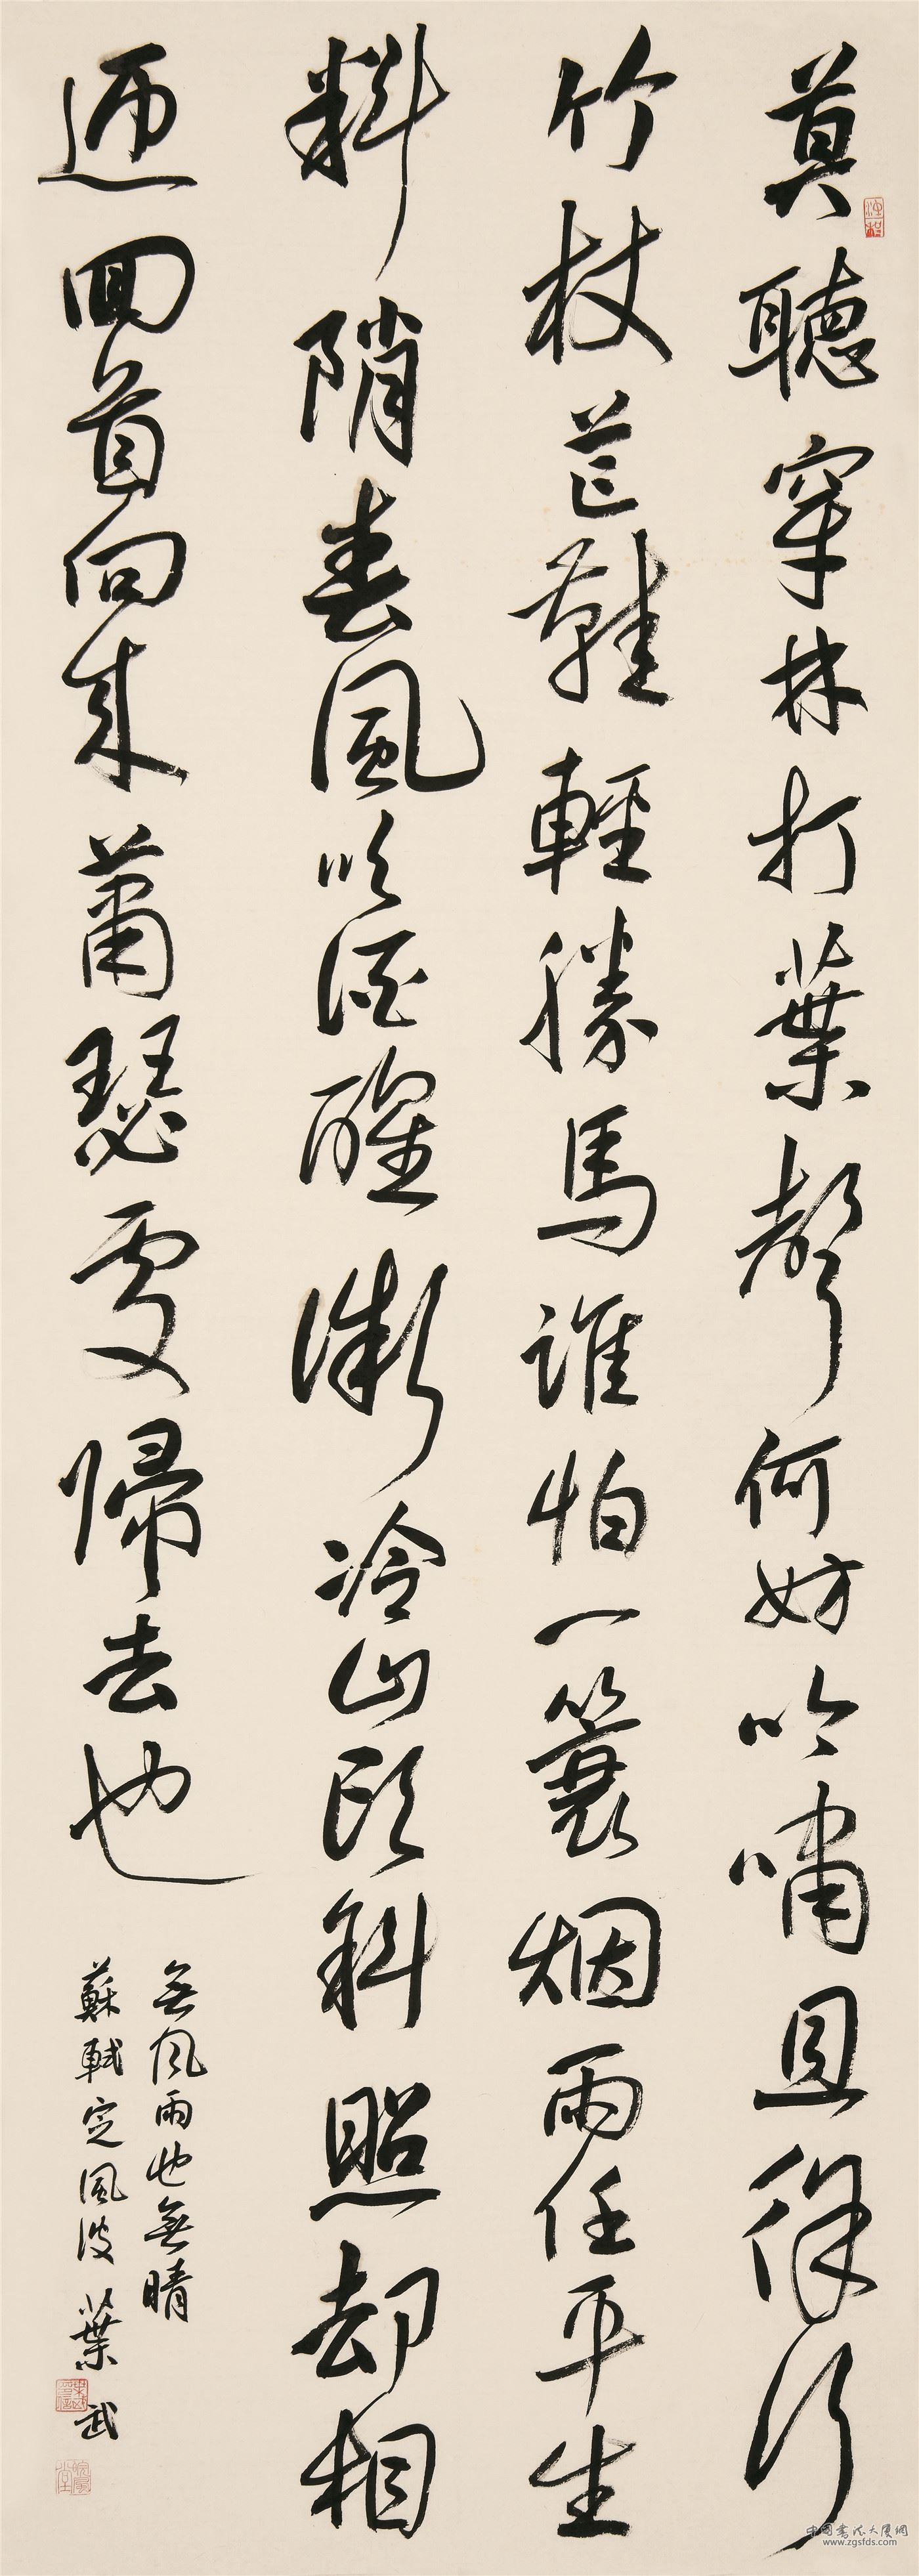 莫聽穿林打葉聲何妨吟嘯且徐行
竹杖芒鞋輕勝馬誰怕一蓑烟雨任平生
料陗春風吹酒醒微冷山頭斜照却相
迎回首向來蕭瑟處歸去也
無風雨也無晴
蘇軾定風波 葉武
中國書法大廈網
www.zgsfds.com